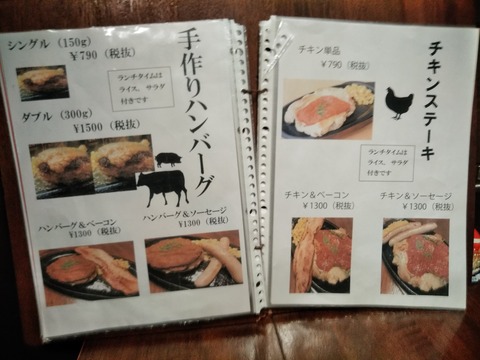 手作りハンバーグ
シングル (150g)
￥790 (税抜)
ランチタイムは
ライス、サラダ
付きです
ダブル (300g)
￥1500 (税抜)
ハンバーグ＆ベーコン
￥1300 (税抜)
ハンバーグ＆ソーセージ
￥1300 (税抜)
チキンステーキ
チキン単品
￥790 (税抜)
ランチタイムは
ライス、サラダ
付きです
チキン＆ベーコン
￥1300 (税抜)
チキン＆ソーセージ
￥1300 (税抜)